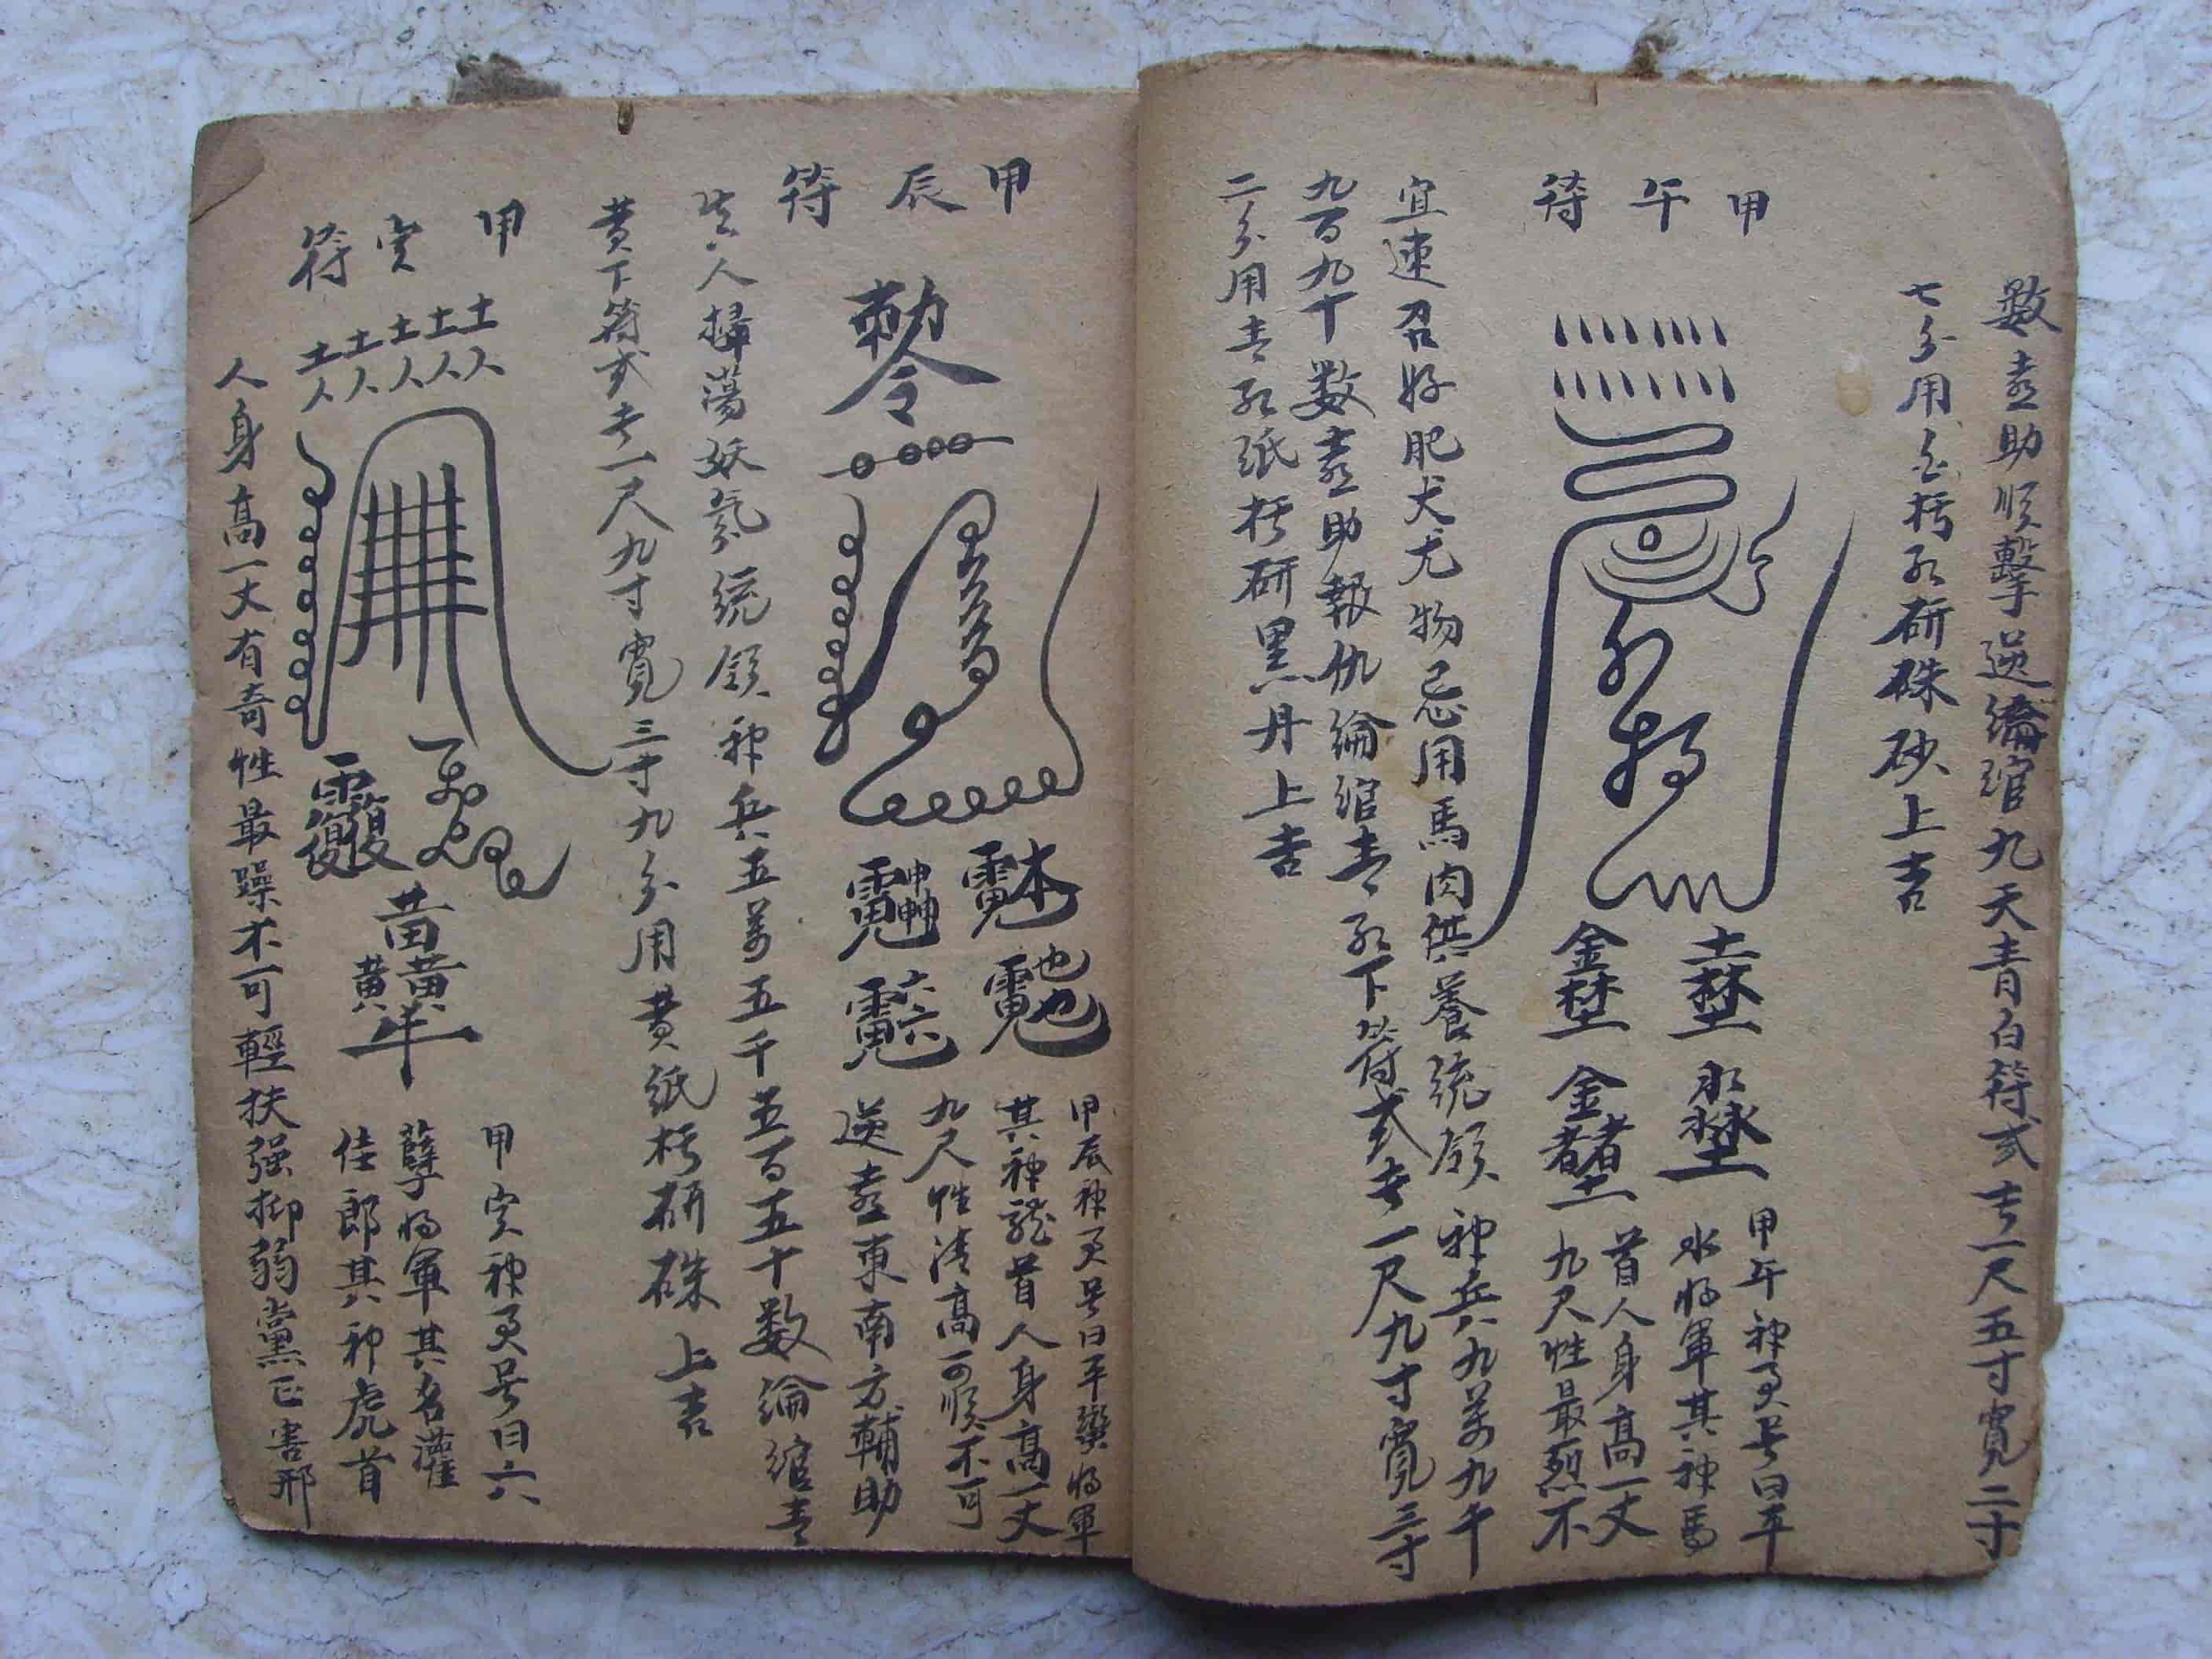 數盡助順擊逆綸綰九天青白符式長一尺五寸寬二寸
七分用金楮紅研硃砂上吉
甲午符
甲午神勇号曰平
水將軍其神馬
首人身高一丈
九尺性最烈不
宜速召好肥犬尤物忌用馬肉供養統領神兵九萬九千
九百九十數盡助報仇綸綰青紅下符式長一尺九寸寬三寸
二分用青紅紙楮研黑丹上吉
甲辰符
勅令
甲辰神勇号曰平欒將軍
其神龍首人身高一丈
九尺性清高可順不可
逆盡東南方輔助
生人掃蕩妖氛統領神兵五萬五千五百五十數綸綰青
黄下符式長一尺九寸寬三寸九分用黄紙楮研硃上吉
甲寅符
土土土土土
人人人人人
甲寅神勇号曰六
孽將軍其名灌
佳郎其神虎首
人身高一丈有奇性最躁不可輕扶强抑弱黨正害邪